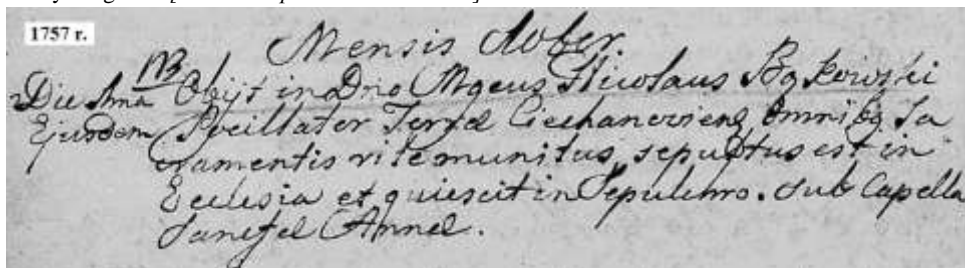 1757 r.
Mensis
NB
Die Obijt in Dno Mgcus Nicolaus Bąkowski
Ejusdem Pocillator Terræ Ciechanoviens Omnibq Sa
cramentis rite munitus, sepultus est in
Ecclesia et quiescit in Sepulcro. Sub Capella
Sanctæ Annæ.